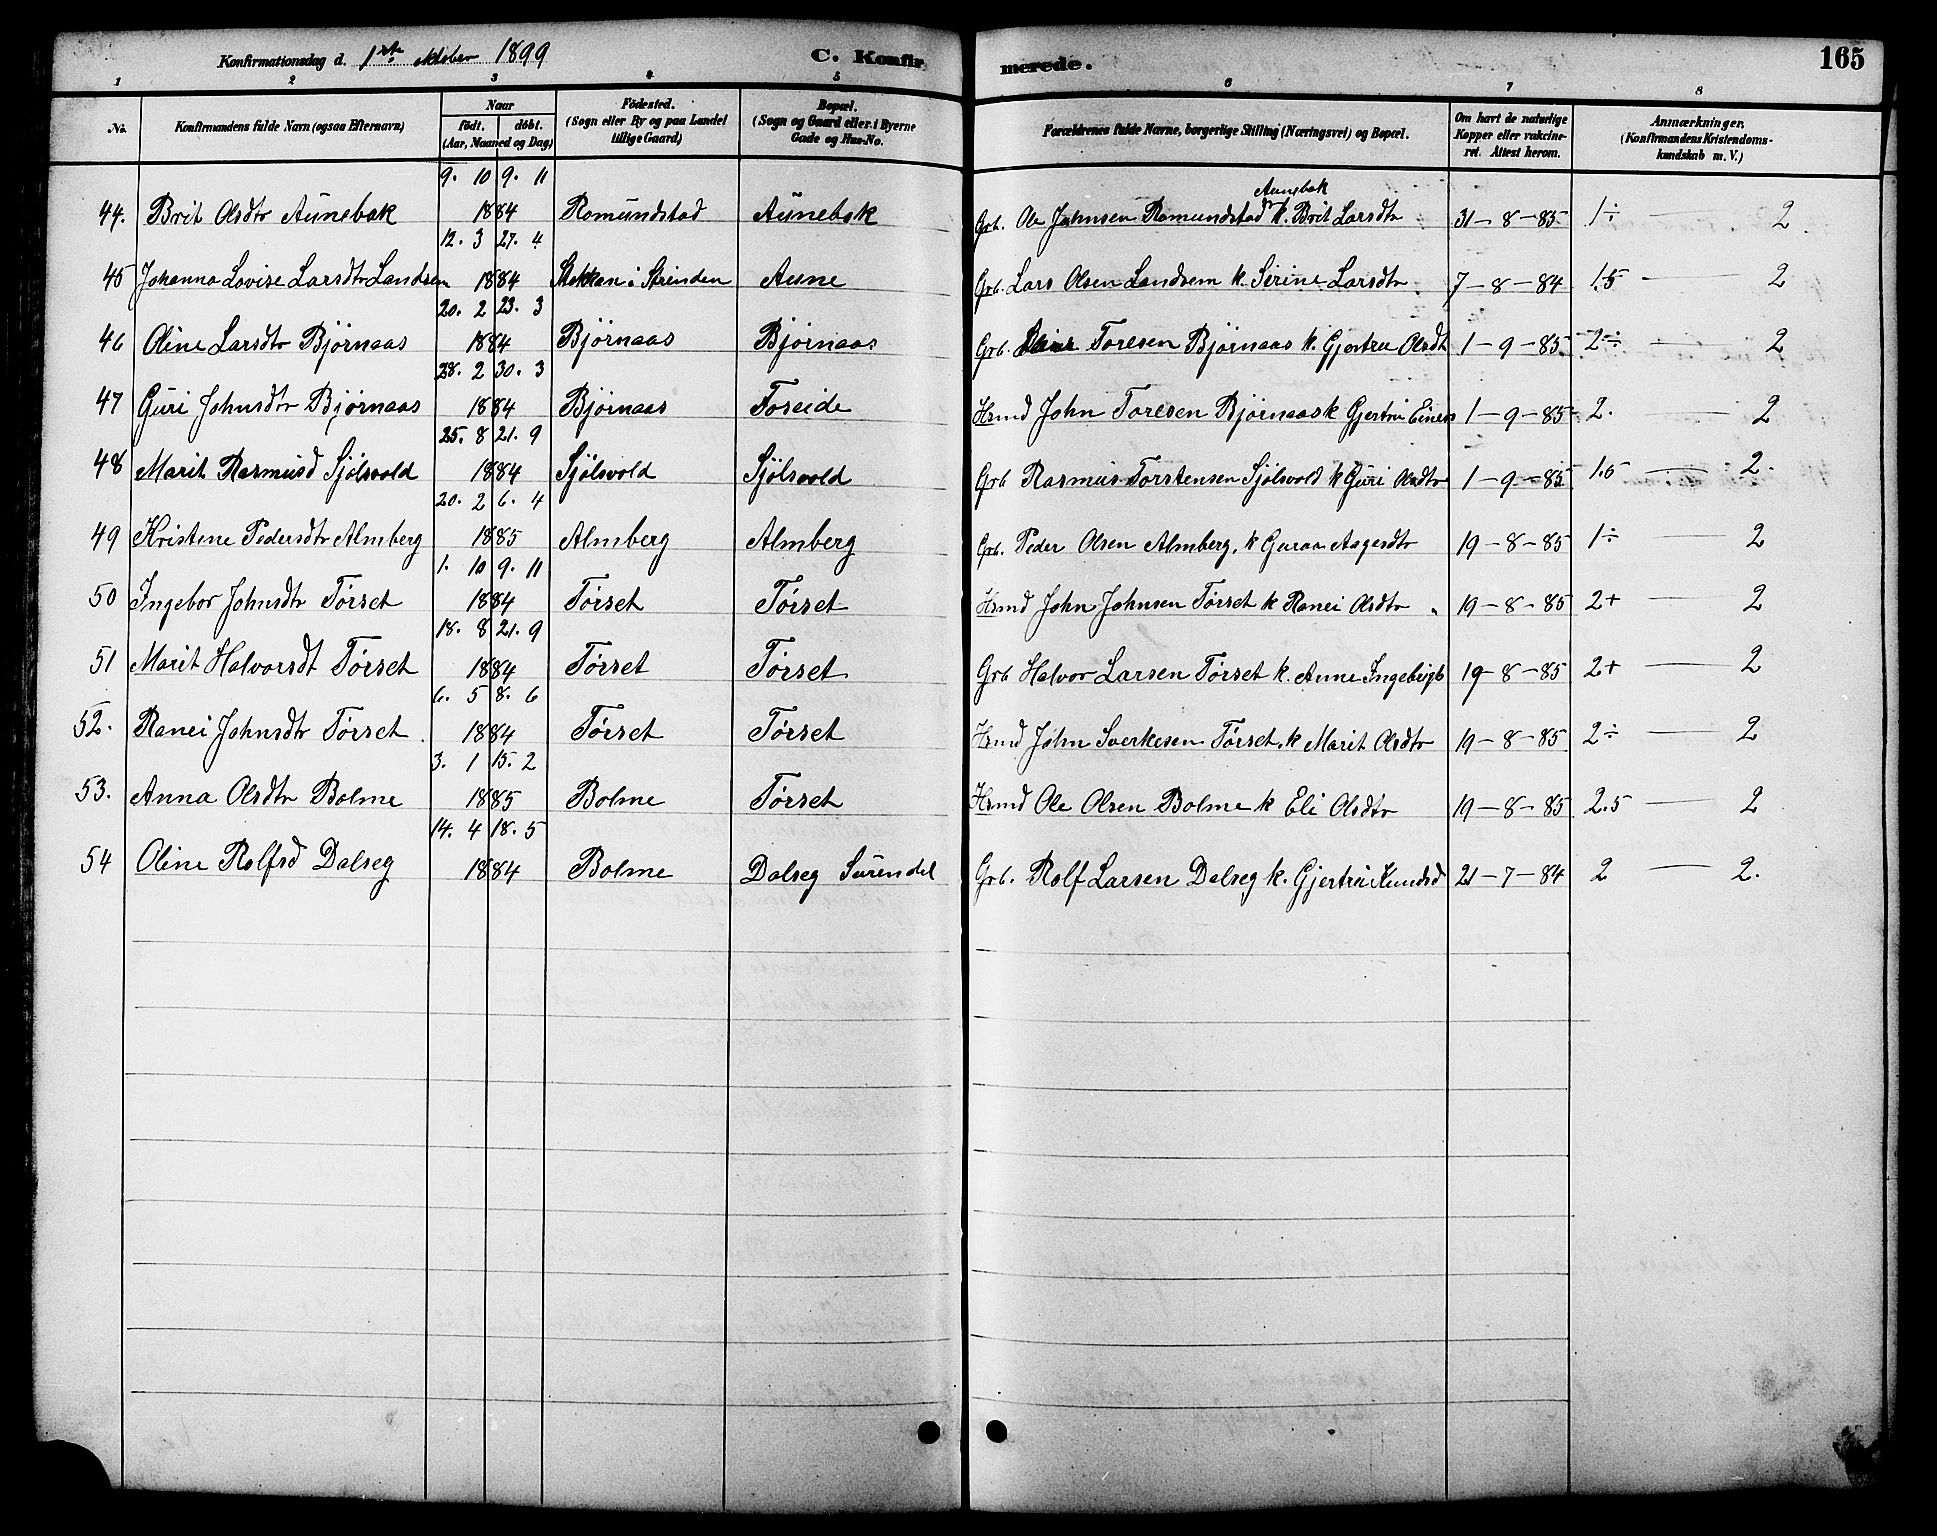 Konfirmationsdag d. 1ste oktober 1899 C. Konfirmerede. 165
1 2 3 4 5 6 7 8
No. Konfirmandens fulde Navn (ogsaa Efternavn) Naar födt. döbt. (Aar, Maaned og Dag) Födested. (Sogn eller By og paa Landet tillige Gaard) Bopæl. (Sogn og Gaard eller i Byerne Gade og Hus-No. Forældrenes fulde Navne, borgerlige Stilling (Næringsvei) og Bopæl. Om havt de naturlige Kopper eller vakcineret. Attest herom. Anmærkninger, (Konfirmandens Kristendomskundskab m. V.)
9. 10 9. 11
Aunebak
44. Brit Olsdtr Aunebak 1884 Romundstad Aunebak Grb. Ole Johnsen Romundstad k. Brit Larsdtr 31-8-85 1÷ — 2
12. 3 27. 4
45 Johanna Lovise Larsdtr Landsem 1884 Stokkan i Strinden Aune Grb. Lars Olsen Landsem k. Sirine Larsdtr 7-8-84 1.5 — 2
20. 2 23. 3
46 Oline Larsdtr Bjørnaas 1884 Bjørnaas Bjørnaas Grb. Toresen Bjørnaas k. Gjertru Olsdt 1-9-85 2÷ — 2
28. 2 30. 3
47 Guri Johnsdtr Bjørnaas 1884 Bjørnaas Foseide Hsmd John Toresen Bjørnaas k Gjertru Einers 1-9-85 2. — 2
25. 8 21. 9
48 Marit Rasmusd Sjølsvold 1884 Sjølsvold Sjølsvold Grb Rasmus Torstensen Sjølsvold k Guri Olsdtr 1-9-85 1.5 — 2.
20. 2 6. 4
49 Kristene Pedersdtr Almberg 1885 Almberg Almberg Grb. Peder Olsen Almberg, k Guraa Aagesdtr 19-8-85 1÷ — 2
1. 10 9. 11
50 Ingebor Johnsdtr Tørset 1884 Tørset Tørset Hsmd John Johnsen Tørset k Ranei Olsdtr 19-8-85 2+ — 2
18. 8 21. 9
51 Marit Halvorsdt Tørset 1884 Tørset Tørset Grb Halvor Larsen Tørset k. Anne Ingebrigts 19-8-85 2+ — 2
6. 5 8. 6
52. Ranei Johnsdtr Tørset 1884 Tørset Tørset Hsmd John Sverkesen Tørset, k Marit Olsdtr 19-8-85 2÷ — 2
3. 1 15. 2
53. Anna Olsdtr Bolme 1885 Bolme Tørset Hsmd Ole Olsen Bolme k Eli Olsdtr 19-8-85 2.5 — 2
14. 4 18. 5
54 Oline Rolfsd Dalseg 1884 Bolme Dalseg Surendal Grb. Rolf Larsen Dalseg k. Gjertru Knudsd 21-7-84 2 — 2.